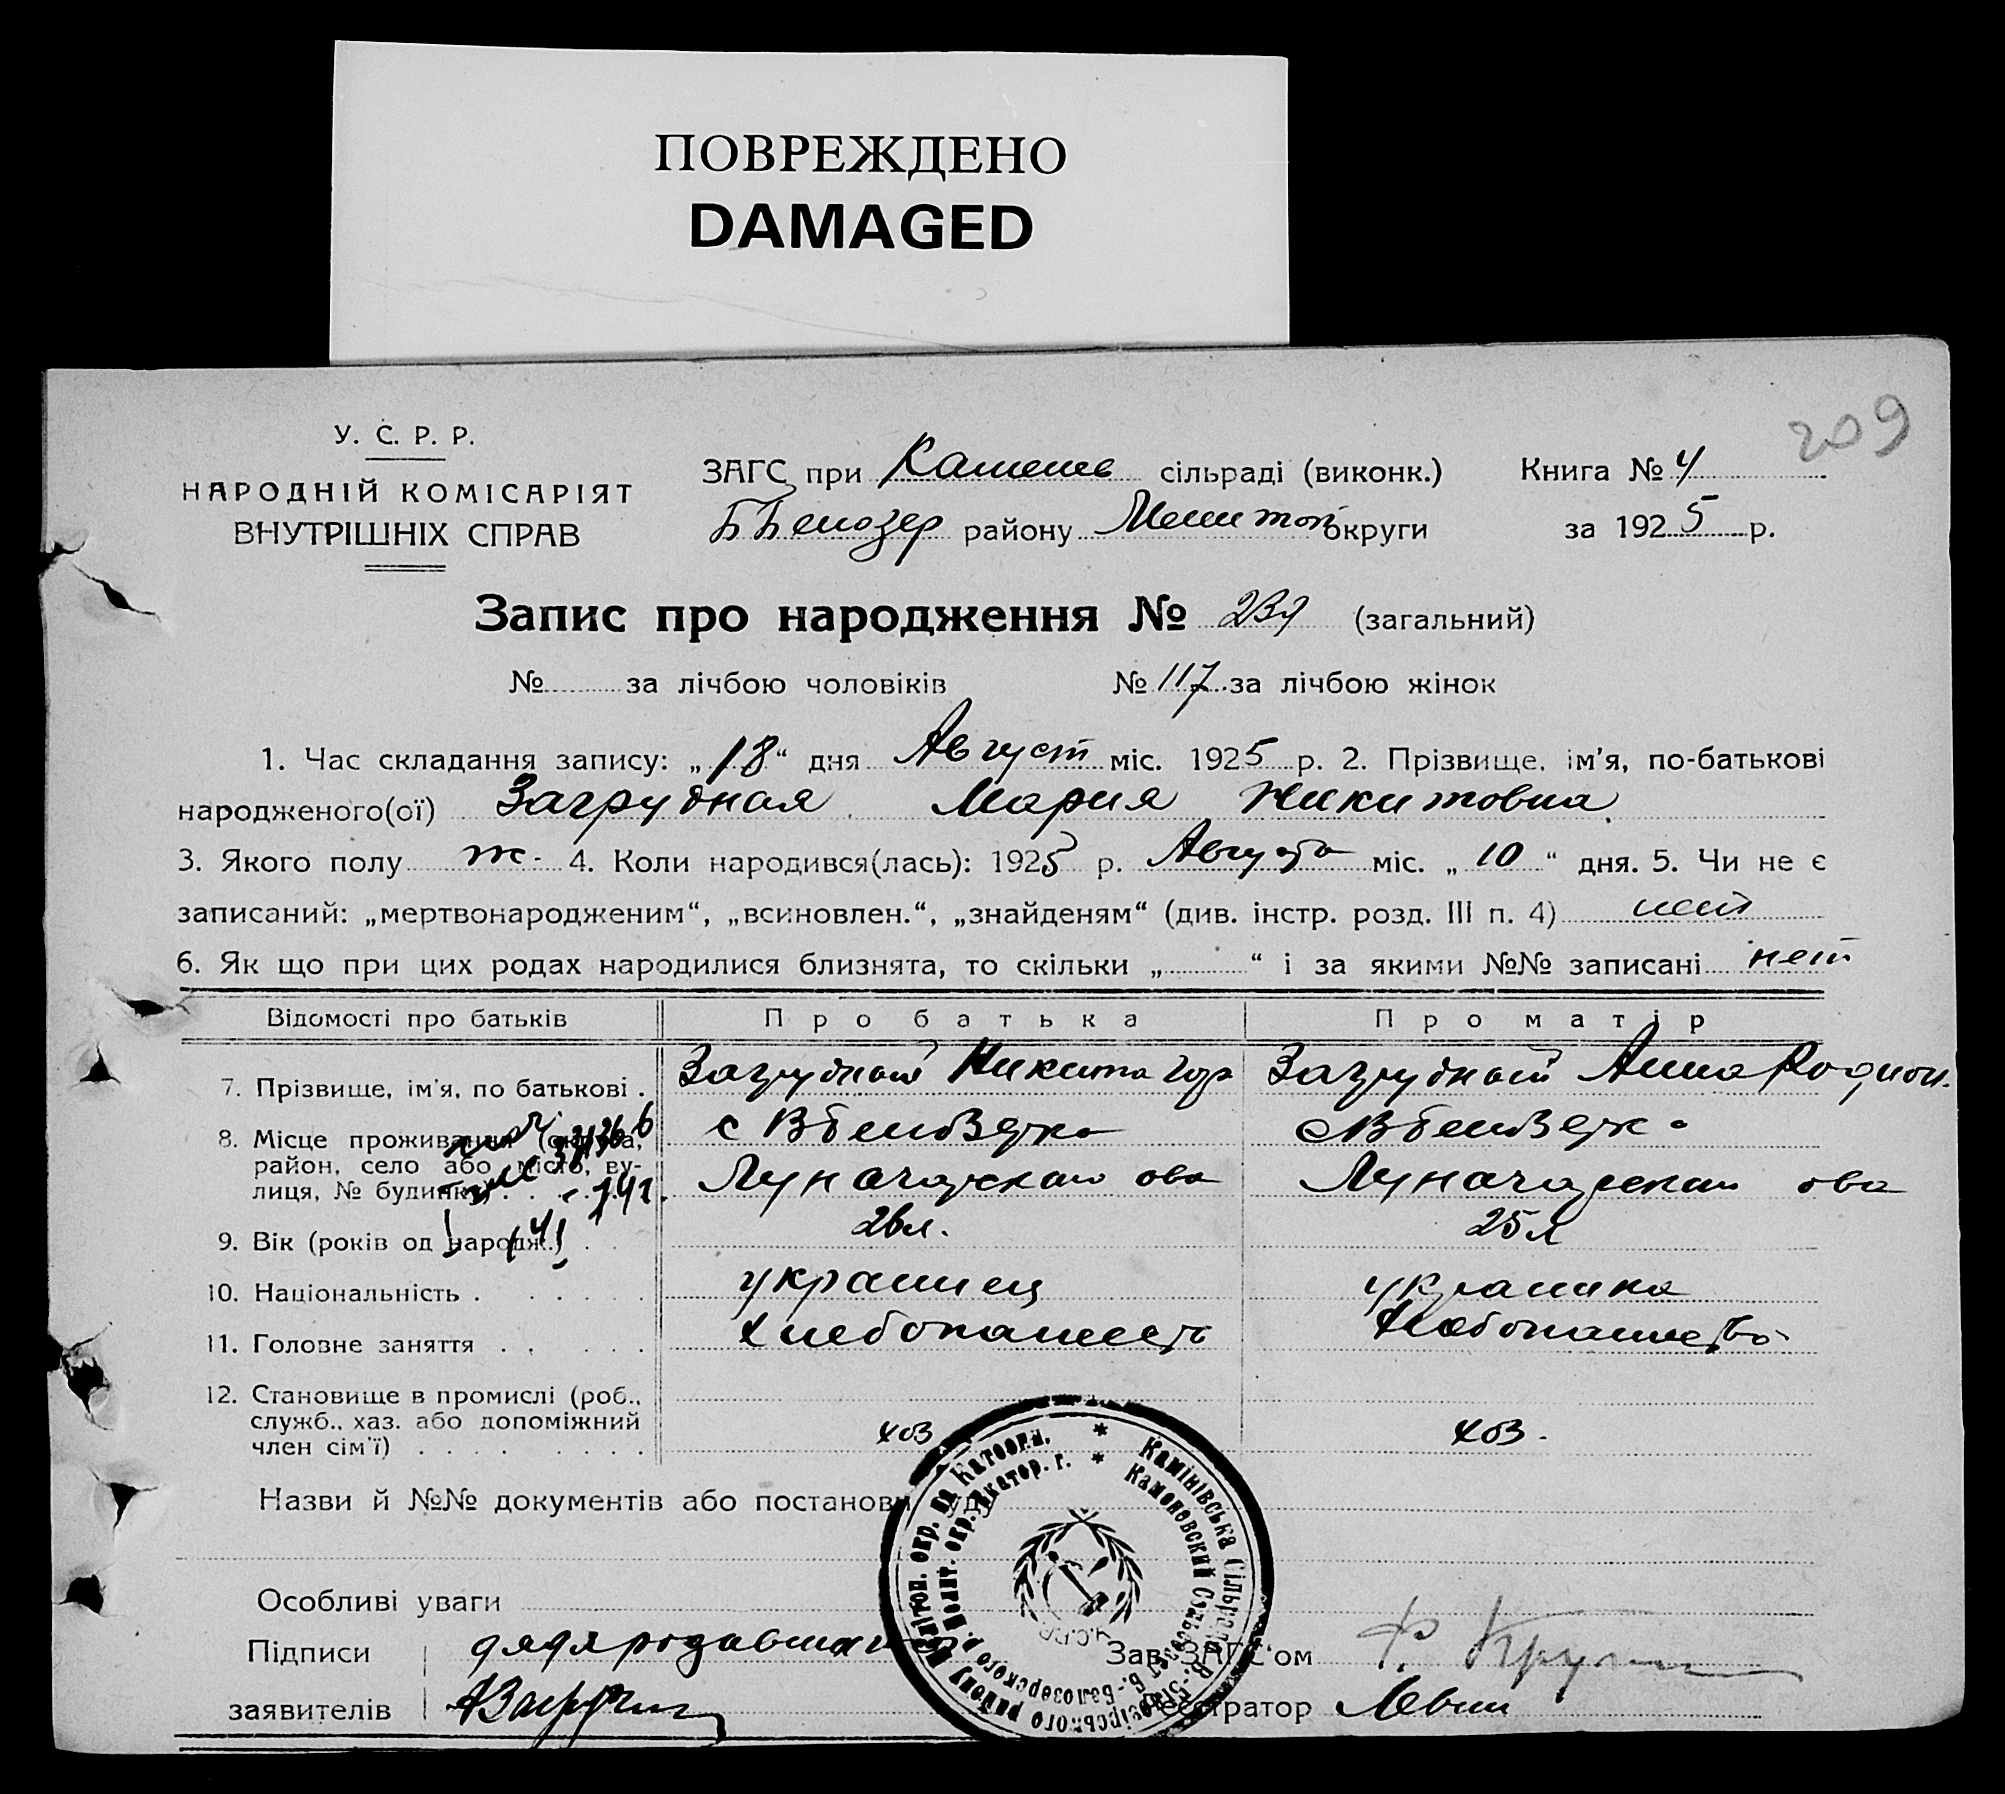 ПОВРЕЖДЕНО
DAMAGED
209
У. С. Р. Р.
НАРОДНІЙ КОМІСАРІЯТ
ВНУТРІШНІХ СПРАВ
ЗАГС при Камене сільраді (виконк.) Книга № 4
ББелозер району Мелитоп округи за 1925 р.
Запис про народження № (загальний)
№ за лічбою чоловіків № 117 за лічбою жінок
1. Час складання запису: „18“ дня Август міс. 1925 р. 2. Прізвище, ім'я, по-батькові
народженого(ої) Загрудная Мария Никитовна
3. Якого полу ж. 4. Коли народився(лась): 1925 р. Августа міс. „10“ дня. 5. Чи не є
записаний: „мертвонародженим“, „всиновлен.“, „знайденям“ (див. інстр. розд. III п. 4) нет
6. Як що при цих родах народилися близнята, то скільки „ “ і за якими №№ записані нет
Відомості про батьків Про батька Про матір
7. Прізвище, ім'я, по батькові . Загрудный Никита Загрудной Анна Родион.
8. Місце проживання (округа, с с
район, село або місто, ву-
лиця, № будинку) Луначарская Луначарская
9. Вік (років од народж.) 26 л. 25 л
10. Національність . украинец украинка
11. Головне заняття . . Хлебопашест Хлебопашество
12. Становище в промислі (роб.,
служб., хаз. або допоміжний
член сім'ї) хоз хоз.
Назви й №№ документів або постанови
Особливі уваги
Підписи
заявителів
Зав. ЗАГС'ом
Реєстратор Левин
Камінівська Сільрада В.-Білозірського району Мелітоп. окр. на Катеорн.
Каменовский Сельсовет Б.-Белозерского р. Мелит. окр. Екатер. г.
У.С.Р.Р.